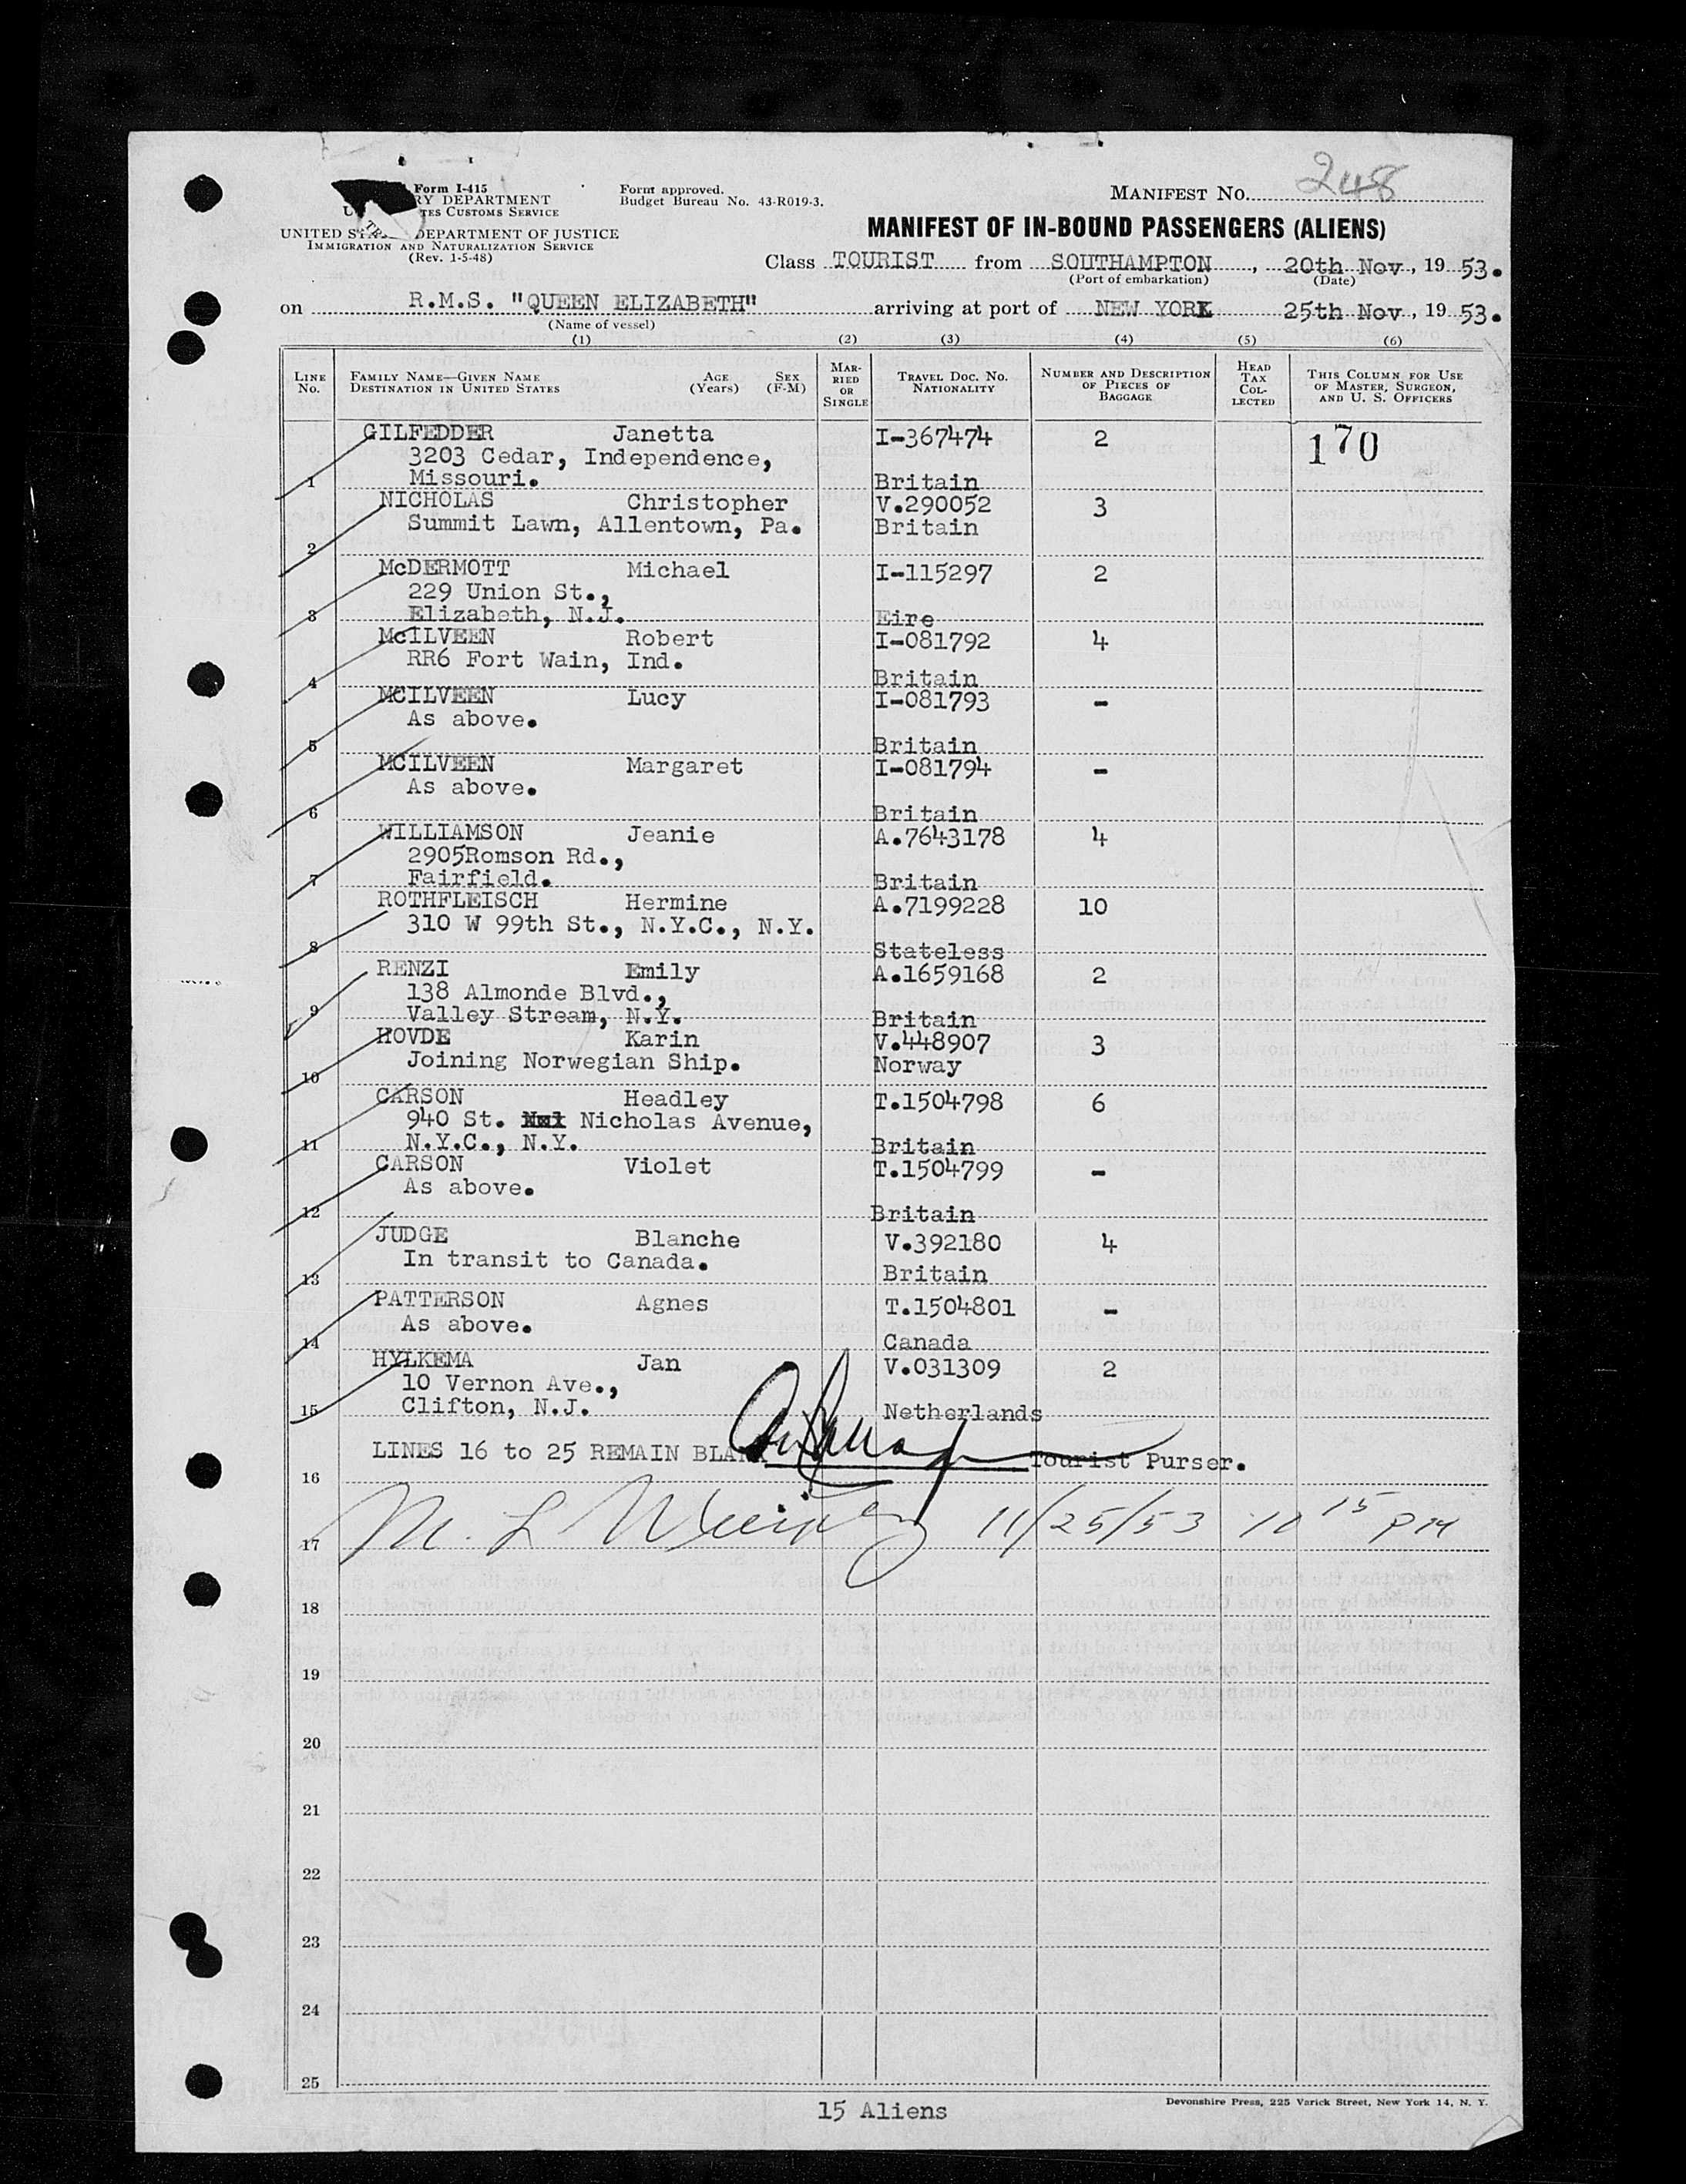 Form I-415
RY DEPARTMENT
TES CUSTOMS SERVICE
UNITED ST DEPARTMENT OF JUSTICE
IMMIGRATION AND NATURALIZATION SERVICE
(Rev. 1-5-48)
Form approved.
Budget Bureau No. 43-R019-3.
MANIFEST No. 248
MANIFEST OF IN-BOUND PASSENGERS (ALIENS)
Class TOURIST from SOUTHAMPTON, 20th Nov, 19 53.
(Port of embarkation) (Date)
on R.M.S. "QUEEN ELIZABETH" arriving at port of NEW YORK 25th Nov, 19 53.
(Name of vessel)
(1) (2) (3) (4) (5) (6)
LINE No. FAMILY NAME—GIVEN NAME DESTINATION IN UNITED STATES AGE (Years) SEX (F-M) MARRIED OR SINGLE TRAVEL DOC. No. NATIONALITY NUMBER AND DESCRIPTION OF PIECES OF BAGGAGE HEAD TAX COLLECTED THIS COLUMN FOR USE OF MASTER, SURGEON, AND U. S. OFFICERS
GILFEDDER Janetta I-367474 2 170
3203 Cedar, Independence,
1 Missouri. Britain
NICHOLAS Christopher V.290052 3
Summit Lawn, Allentown, Pa. Britain
2
McDERMOTT Michael I-115297 2
229 Union St.,
3 Elizabeth, N.J. Eire
McILVEEN Robert I-081792 4
RR6 Fort Wain, Ind.
4 Britain
MCILVEEN Lucy I-081793 -
As above.
5 Britain
MCILVEEN Margaret I-081794 -
As above.
6 Britain
WILLIAMSON Jeanie A.7643178 4
2905Romson Rd.,
7 Fairfield. Britain
ROTHFLEISCH Hermine A.7199228 10
310 W 99th St., N.Y.C., N.Y.
8 Stateless
RENZI Emily A.1659168 2
138 Almonde Blvd.,
9 Valley Stream, N.Y. Britain
HOVDE Karin V.448907 3
Joining Norwegian Ship. Norway
10
CARSON Headley T.1504798 6
940 St. Nicholas Avenue,
11 N.Y.C., N.Y. Britain
CARSON Violet T.1504799 -
As above.
12 Britain
JUDGE Blanche V.392180 4
In transit to Canada.
13 Britain
PATTERSON Agnes T.1504801 -
As above.
14 Canada
HYLKEMA Jan V.031309 2
10 Vernon Ave.,
15 Clifton, N.J. Netherlands
LINES 16 to 25 REMAIN BLANK Tourist Purser.
16
17 M. L 11/25/53 10 15 PM
18
19
20
21
22
23
24
25
15 Aliens
Devonshire Press, 225 Varick Street, New York 14, N. Y.